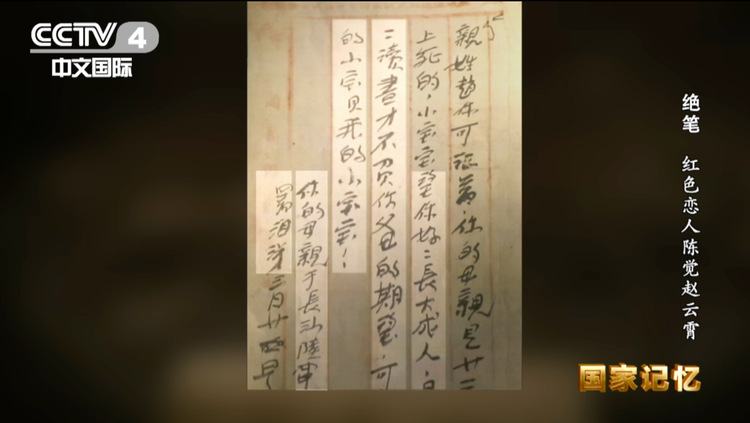 CCTV 4
中文国际
绝笔 红色恋人陈觉赵云霄
親姓趙你可記著你的母親是廿三
上死的，小宝宝望你好二長大成人，且
二讀書才不負你父母的期望。可
的小宝贝我的小宝宝！
你的母親于長沙陸軍
署泪涕三月廿四早
国家记忆